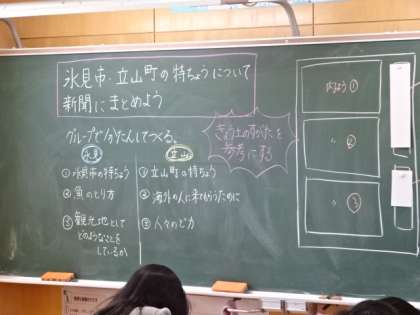 氷見市・立山町の特ちょうについて
新聞にまとめよう
グループで分たんしてつくる。
氷見
①氷見市の特ちょう
②魚のとり方
③観光地として
どのようなことを
しているか
立山
①立山町の特ちょう
②海外の人に来てもらうために
③人々のど力
きょう土のすがたを
参考にする
内よう①
〃②
〃③